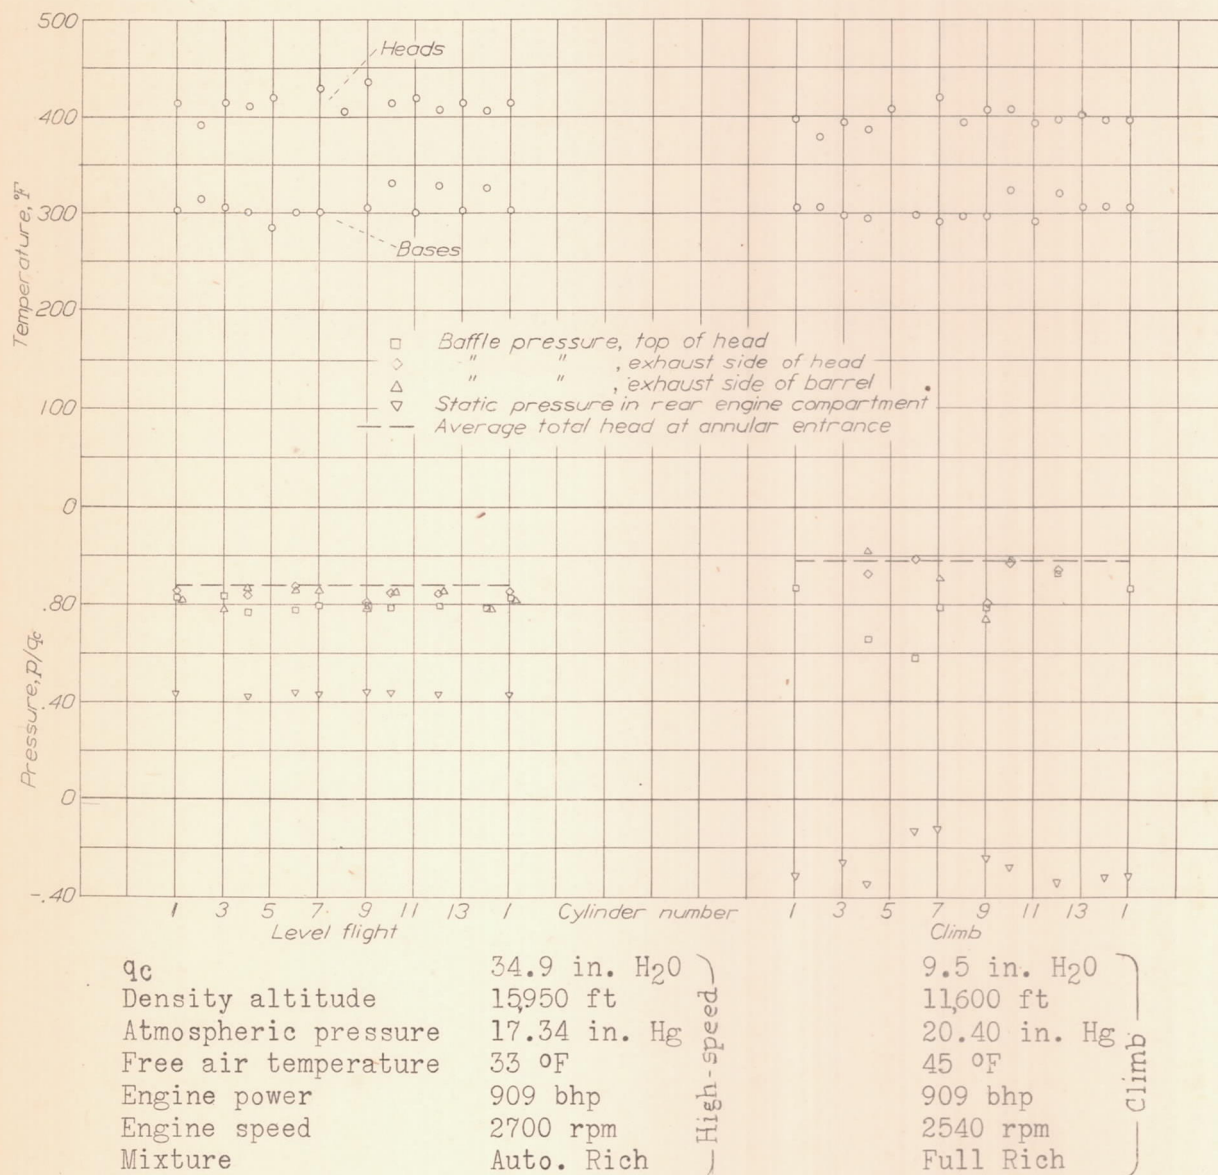 500
Heads
400
Temperature, °F
300
Bases
200
□ Baffle pressure, top of head
◇ " " , exhaust side of head
△ " " , exhaust side of barrel
▽ Static pressure in rear engine compartment
— — Average total head at annular entrance
100
0
.80
Pressure, p/qc
.40
0
-.40
1 3 5 7 9 11 13 1 Cylinder number 1 3 5 7 9 11 13 1
Level flight Climb
qc 34.9 in. H2O 9.5 in. H2O
Density altitude 15,950 ft 11,600 ft
Atmospheric pressure 17.34 in. Hg 20.40 in. Hg
Free air temperature 33 °F 45 °F
Engine power 909 bhp 909 bhp
Engine speed 2700 rpm 2540 rpm
Mixture Auto. Rich Full Rich
High-speed
Climb